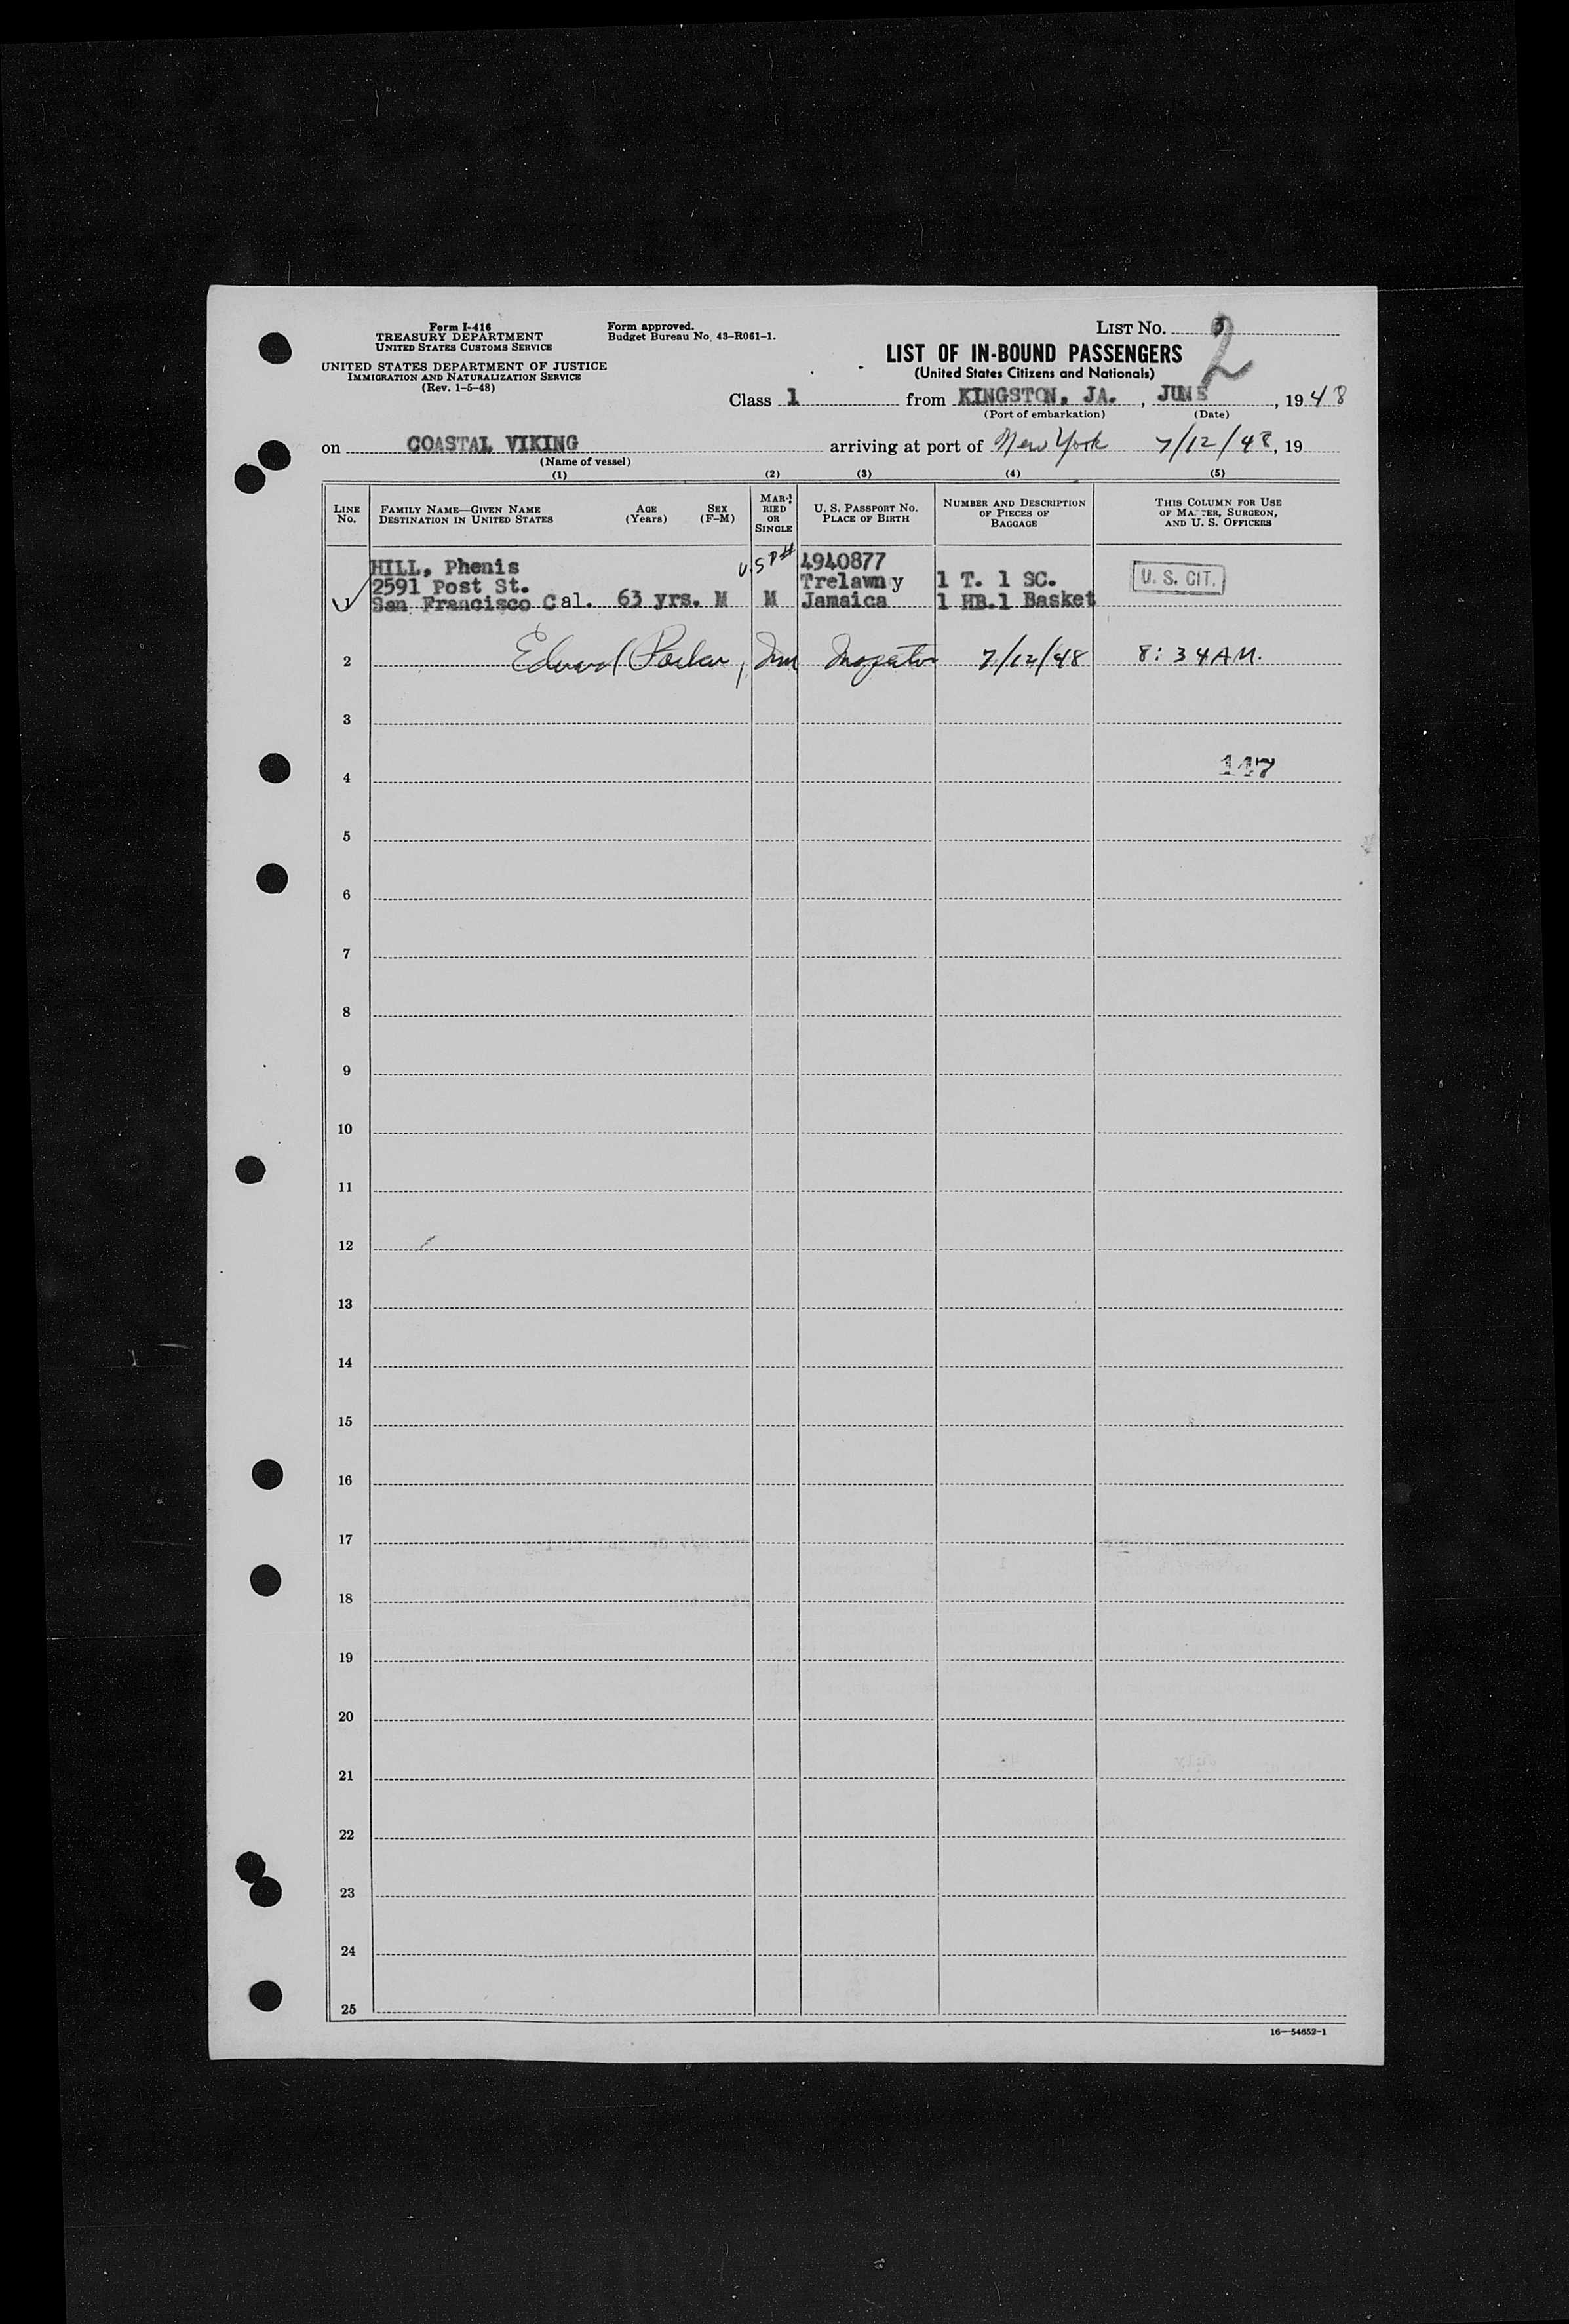 Form I-416
TREASURY DEPARTMENT
UNITED STATES CUSTOMS SERVICE
UNITED STATES DEPARTMENT OF JUSTICE
IMMIGRATION AND NATURALIZATION SERVICE
(Rev. 1-5-48)
Form approved.
Budget Bureau No. 43-R061-1.
LIST No. 3
2
LIST OF IN-BOUND PASSENGERS
(United States Citizens and Nationals)
Class 1 from KINGSTON, JA. , JUN 5 , 1948
(Port of embarkation) (Date)
on COASTAL VIKING arriving at port of New York 7/12/48, 19
(Name of vessel)
(1) (2) (3) (4) (5)
LINE No.
FAMILY NAME—GIVEN NAME
DESTINATION IN UNITED STATES
AGE (Years)
SEX (F-M)
MARRIED OR SINGLE
U. S. PASSPORT No.
PLACE OF BIRTH
NUMBER AND DESCRIPTION
OF PIECES OF
BAGGAGE
THIS COLUMN FOR USE
OF MASTER, SURGEON,
AND U. S. OFFICERS
HILL, Phenis U.S PP# 4940877
2591 Post St. Trelawny 1 T. 1 SC. U. S. CIT.
1 San Francisco Cal. 63 yrs. M M Jamaica 1 HB.1 Basket
2 Edward Parker, Imm Inspector 7/12/48 8:34 AM.
3
4 147
5
6
7
8
9
10
11
12
13
14
15
16
17
18
19
20
21
22
23
24
25
16—54652-1